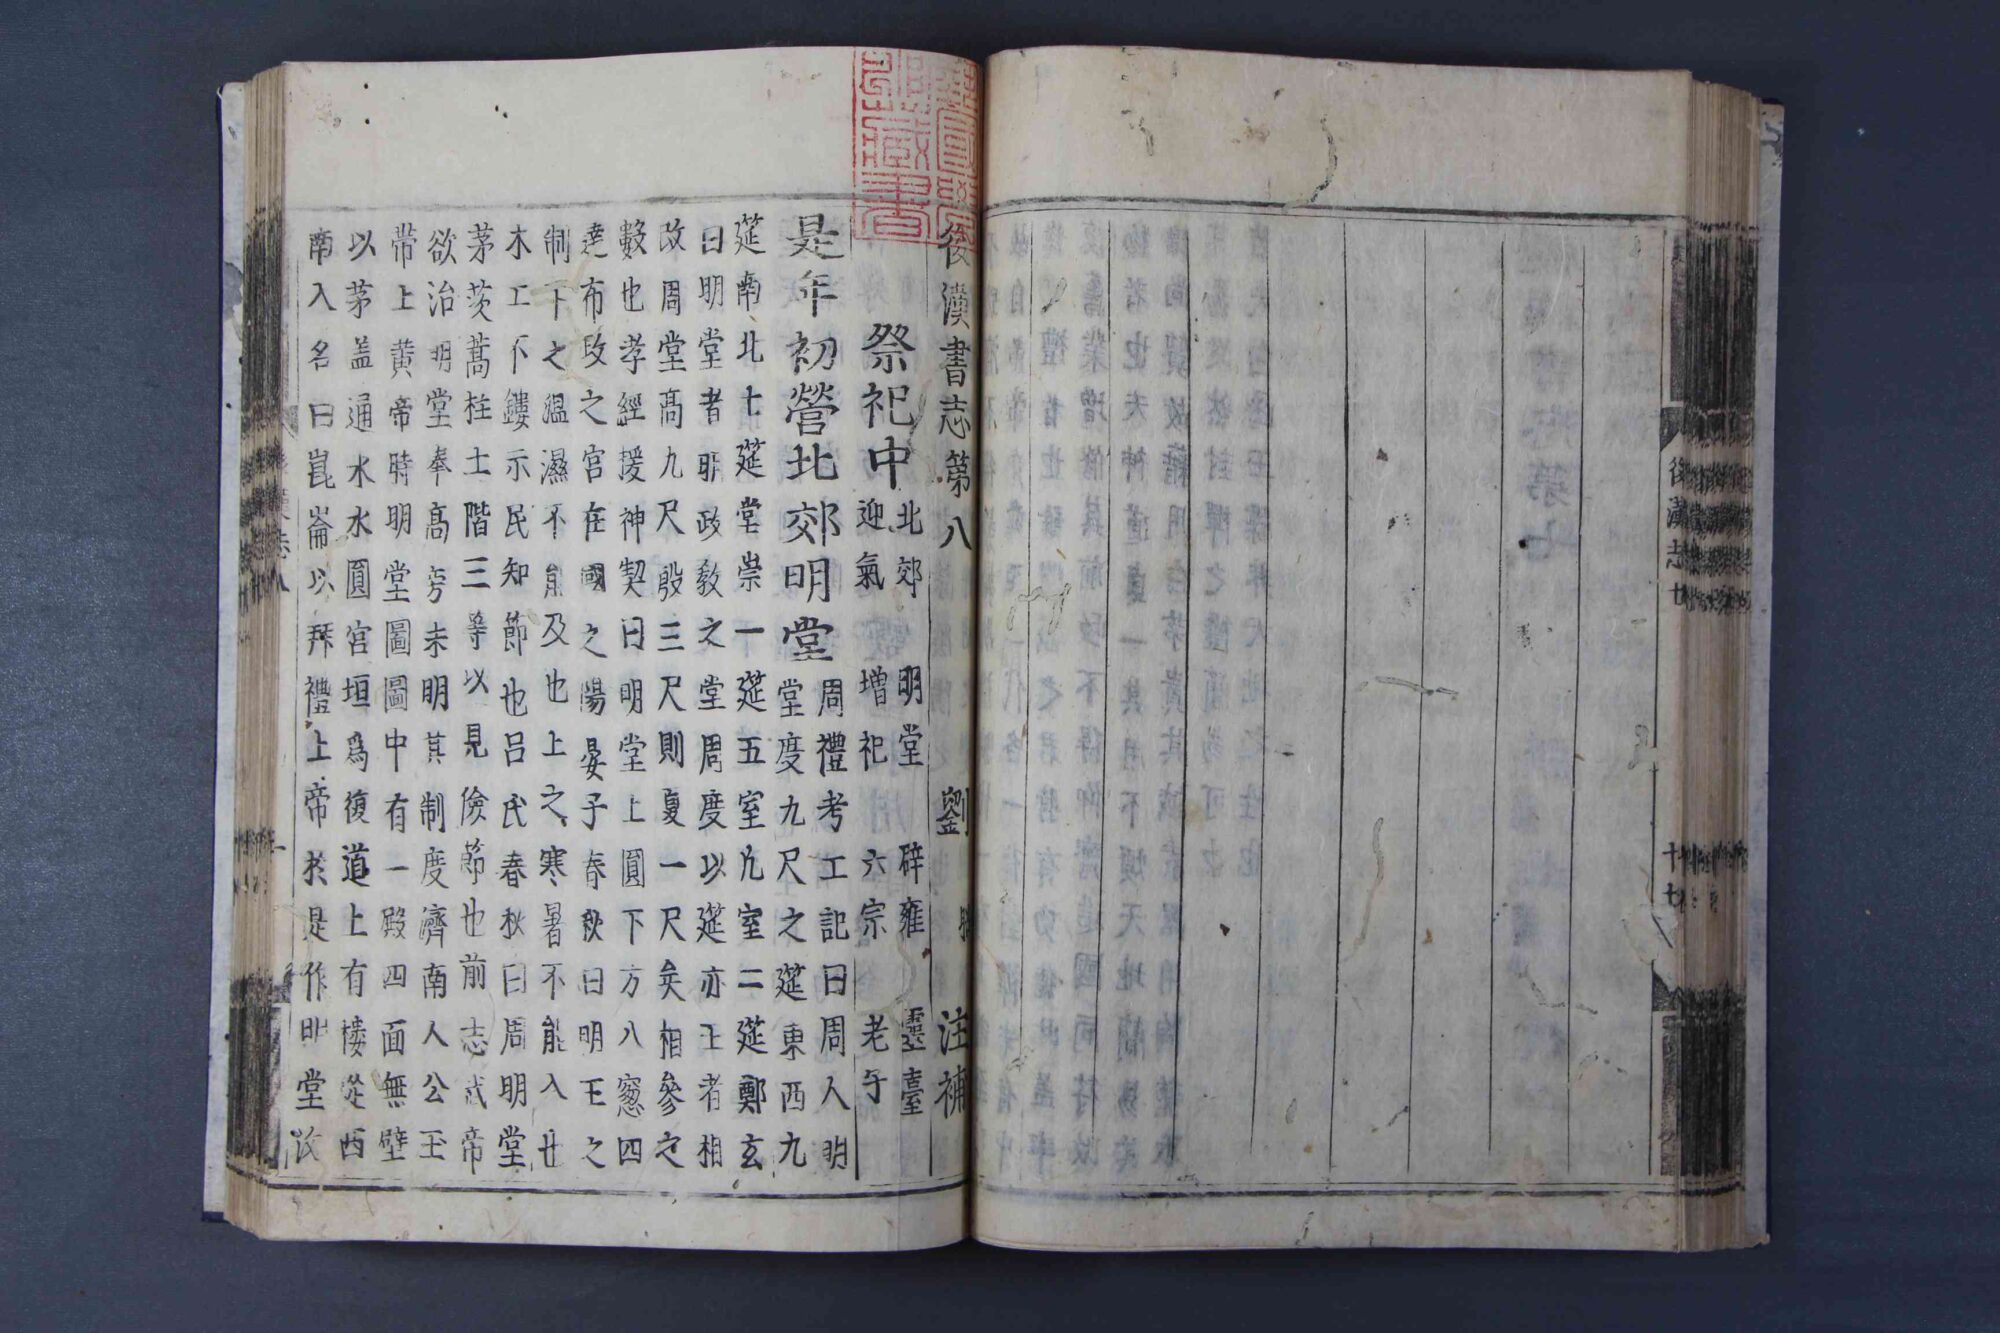 後漢志七
十七
後漢書志第八 劉昭 注補
祭祀中 北郊 明堂 辟雍 靈臺
迎氣 增祀 六宗 老子
是年初營北郊明堂 周禮考工記曰周人明
堂度九尺之筵東西九
筵南北七筵堂崇一筵五室凡室二筵鄭玄
曰明堂者明政敎之堂周度以筵亦王者相
改周堂高九尺殷三尺則夏一尺矣相參之
數也孝經援神契曰明堂上圓下方八窓四
達布政之宮在國之陽晏子春秋曰明王之
制下之溫濕不能及也上之寒暑不能入也
木工不鏤示民知節也呂氏春秋曰周明堂
茅茨蒿柱土階三等以見儉節也前志武帝
欲治明堂奉高旁未明其制度濟南人公玉
帶上黃帝時明堂圖圖中有一殿四面無壁
以茅盖通水水圓宮垣爲復道上有樓從西
南入名曰崑崙以拜禮上帝於是作明堂汶